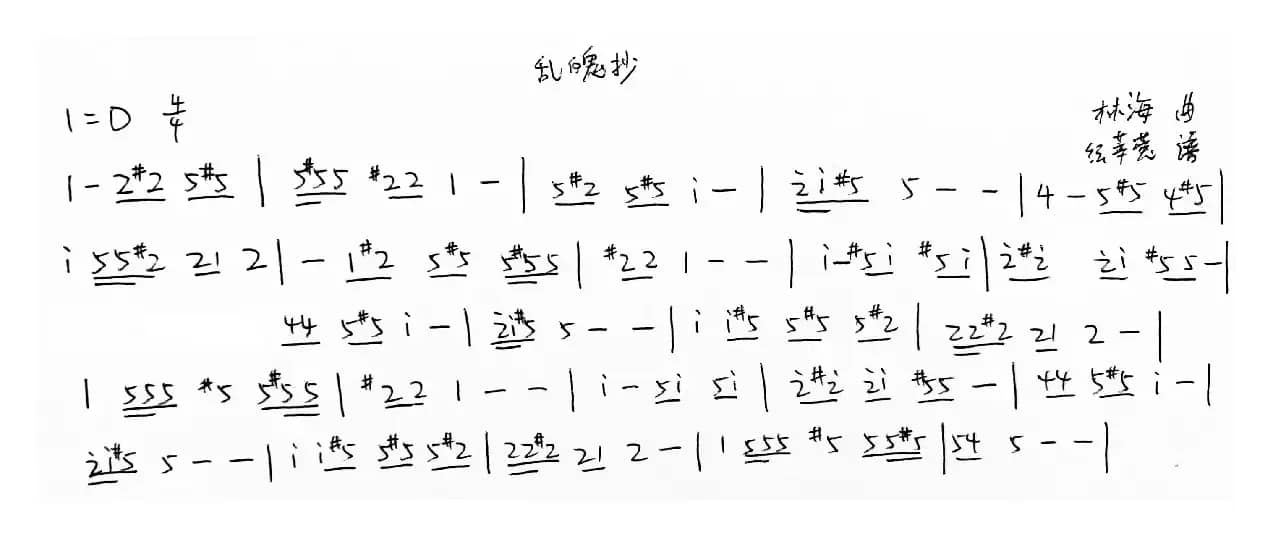 乱魄抄
1=D 4/4
林海 曲
谱
1 - 2#2 5#5 | 5#55 #22 1 - | 5#2 5#5 i - | 2i#5 5 - - | 4 - 5#5 4#5 |
i 55#2 21 2 | - 1#2 5#5 5#55 | #22 1 - - | i-#5i #5i | 2#2 2i #55 - |
44 5#5 i - | 2i#5 5 - - | i i#5 5#5 5#2 | 22#2 21 2 - |
1 555 #5 5#55 | #22 1 - - | i - 5i 5i | 2#2 2i #55 - | 44 5#5 i - |
2i#5 5 - - | i i#5 5#5 5#2 | 22#2 21 2 - | 1 555 #5 55#5 | 54 5 - - |